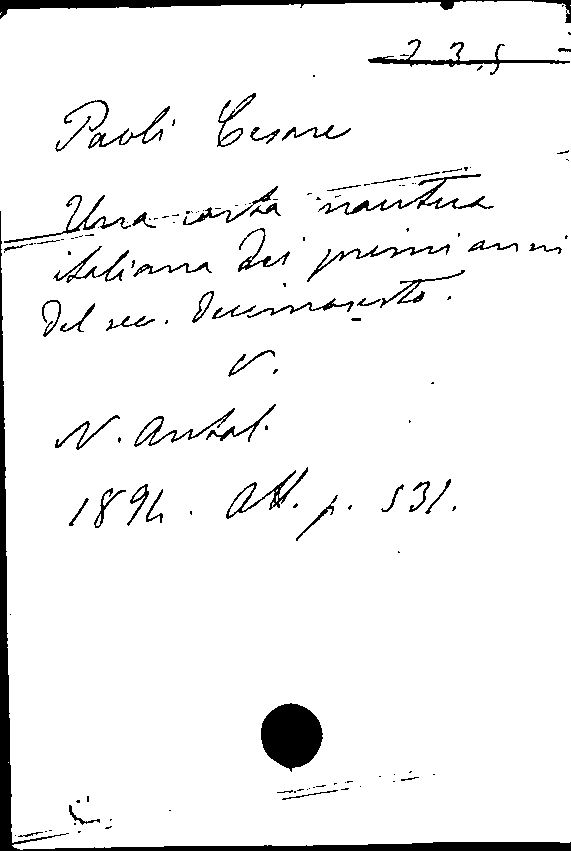 235
Paoli Cesare
Una carta nautica
italiana dei primi anni
del sec. decimosesto.
V.
N. Antol.
1894. Ott. p. 531.